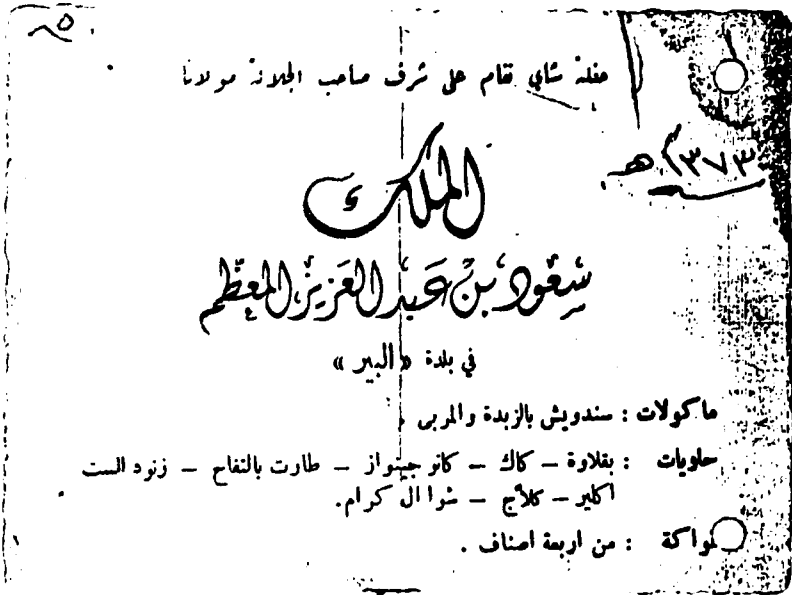 ٥
حفلة شاي تقام على شرف صاحب الجلالة مولانا
١٣٧٣هـ
الملك
سعود بن عبد العزيز المعظم
في بلدة « البير »
ماكولات : سندويش بالزبدة والمربى .
حلويات : بقلاوة – كاك – كاتو جينواز – طارت بالتفاح – زنود الست
اكلير – كلاج – شوا ال كرام.
فواكة : من اربعة اصناف .